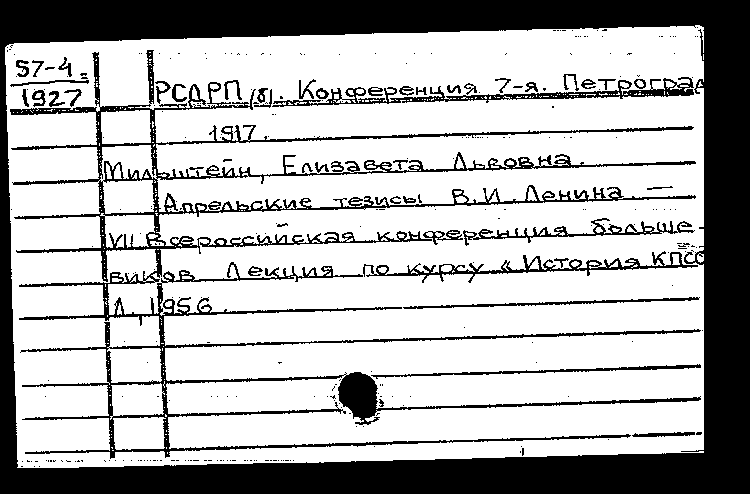 57-4
1927
РСДРП(б). Конференция, 7-я. Петроград
1917.
Мильштейн, Елизавета Львовна.
Апрельские тезисы В.И. Ленина. —
VII Всероссийская конференция больше-
виков. Лекция по курсу «История КПСС
Л., 1956.